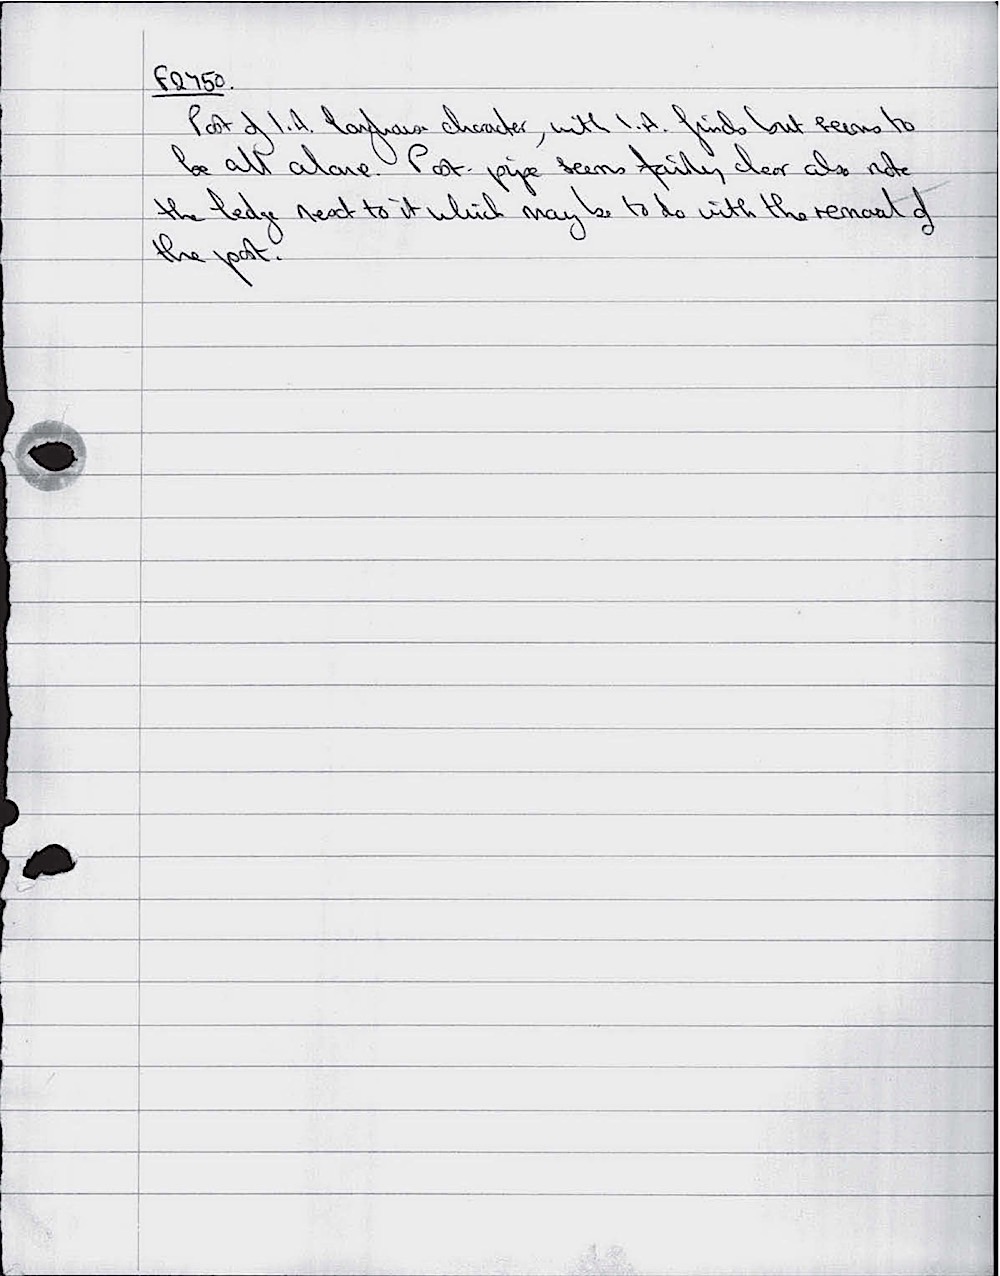 F2750.
Post of I.A. longhouse character, with I.A. finds but seems to
be all alone. Post-pipe seems fairly clear also note
the ledge next to it which may be to do with the removal of
the post.